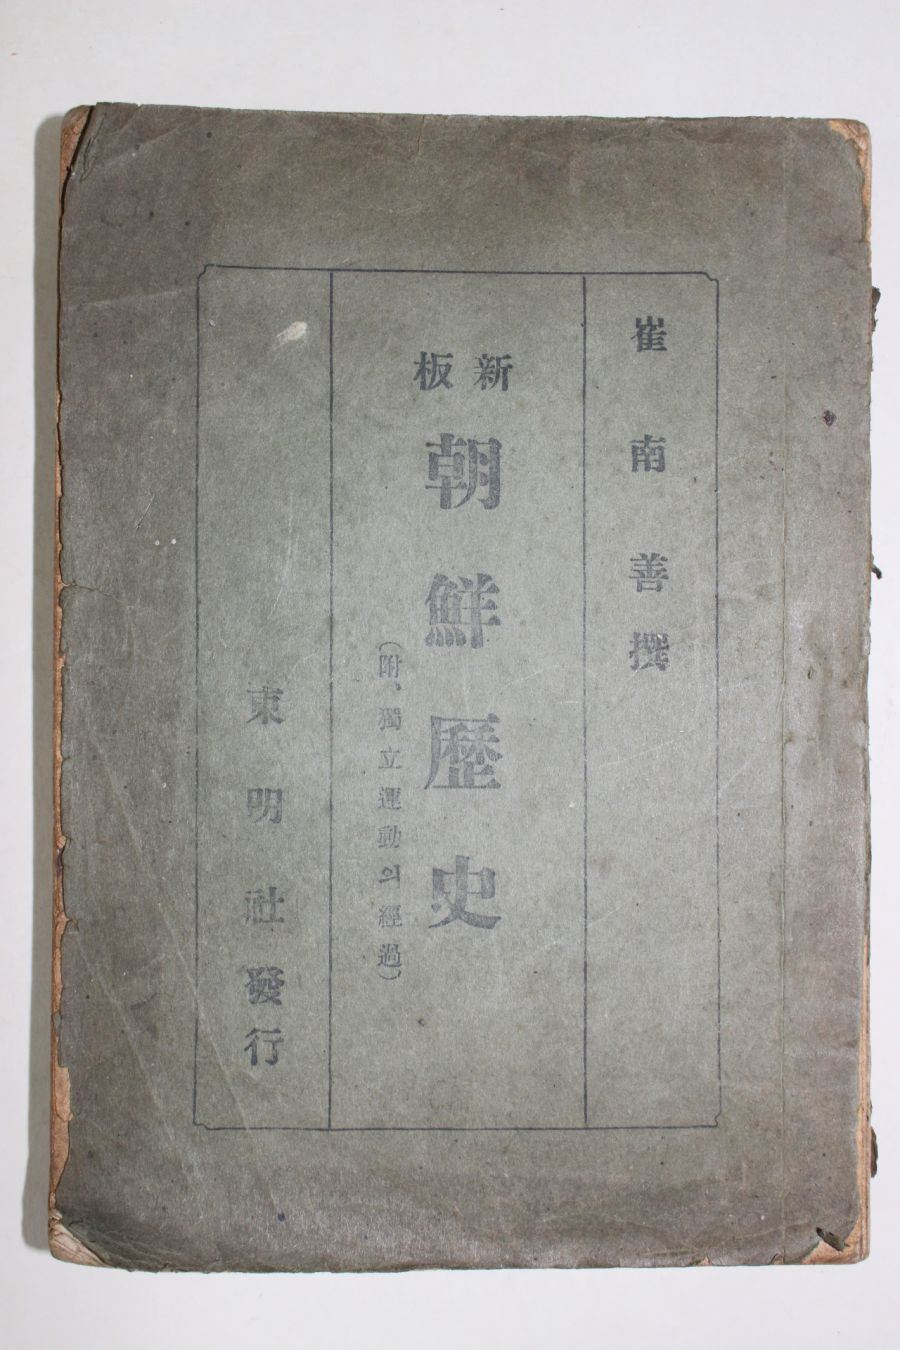 崔南善撰
新板
朝鮮歷史
(附、獨立運動의經過)
東明社發行